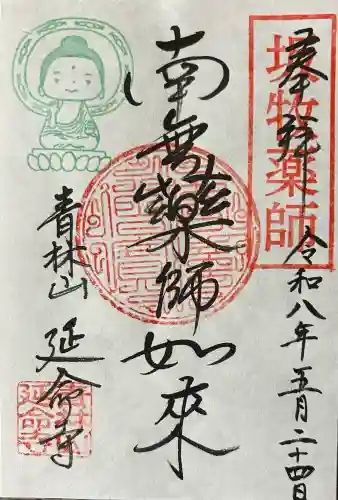 奉拝
塩牧薬師
令和八年五月二十四日
南無薬師如来
青林山
延命寺